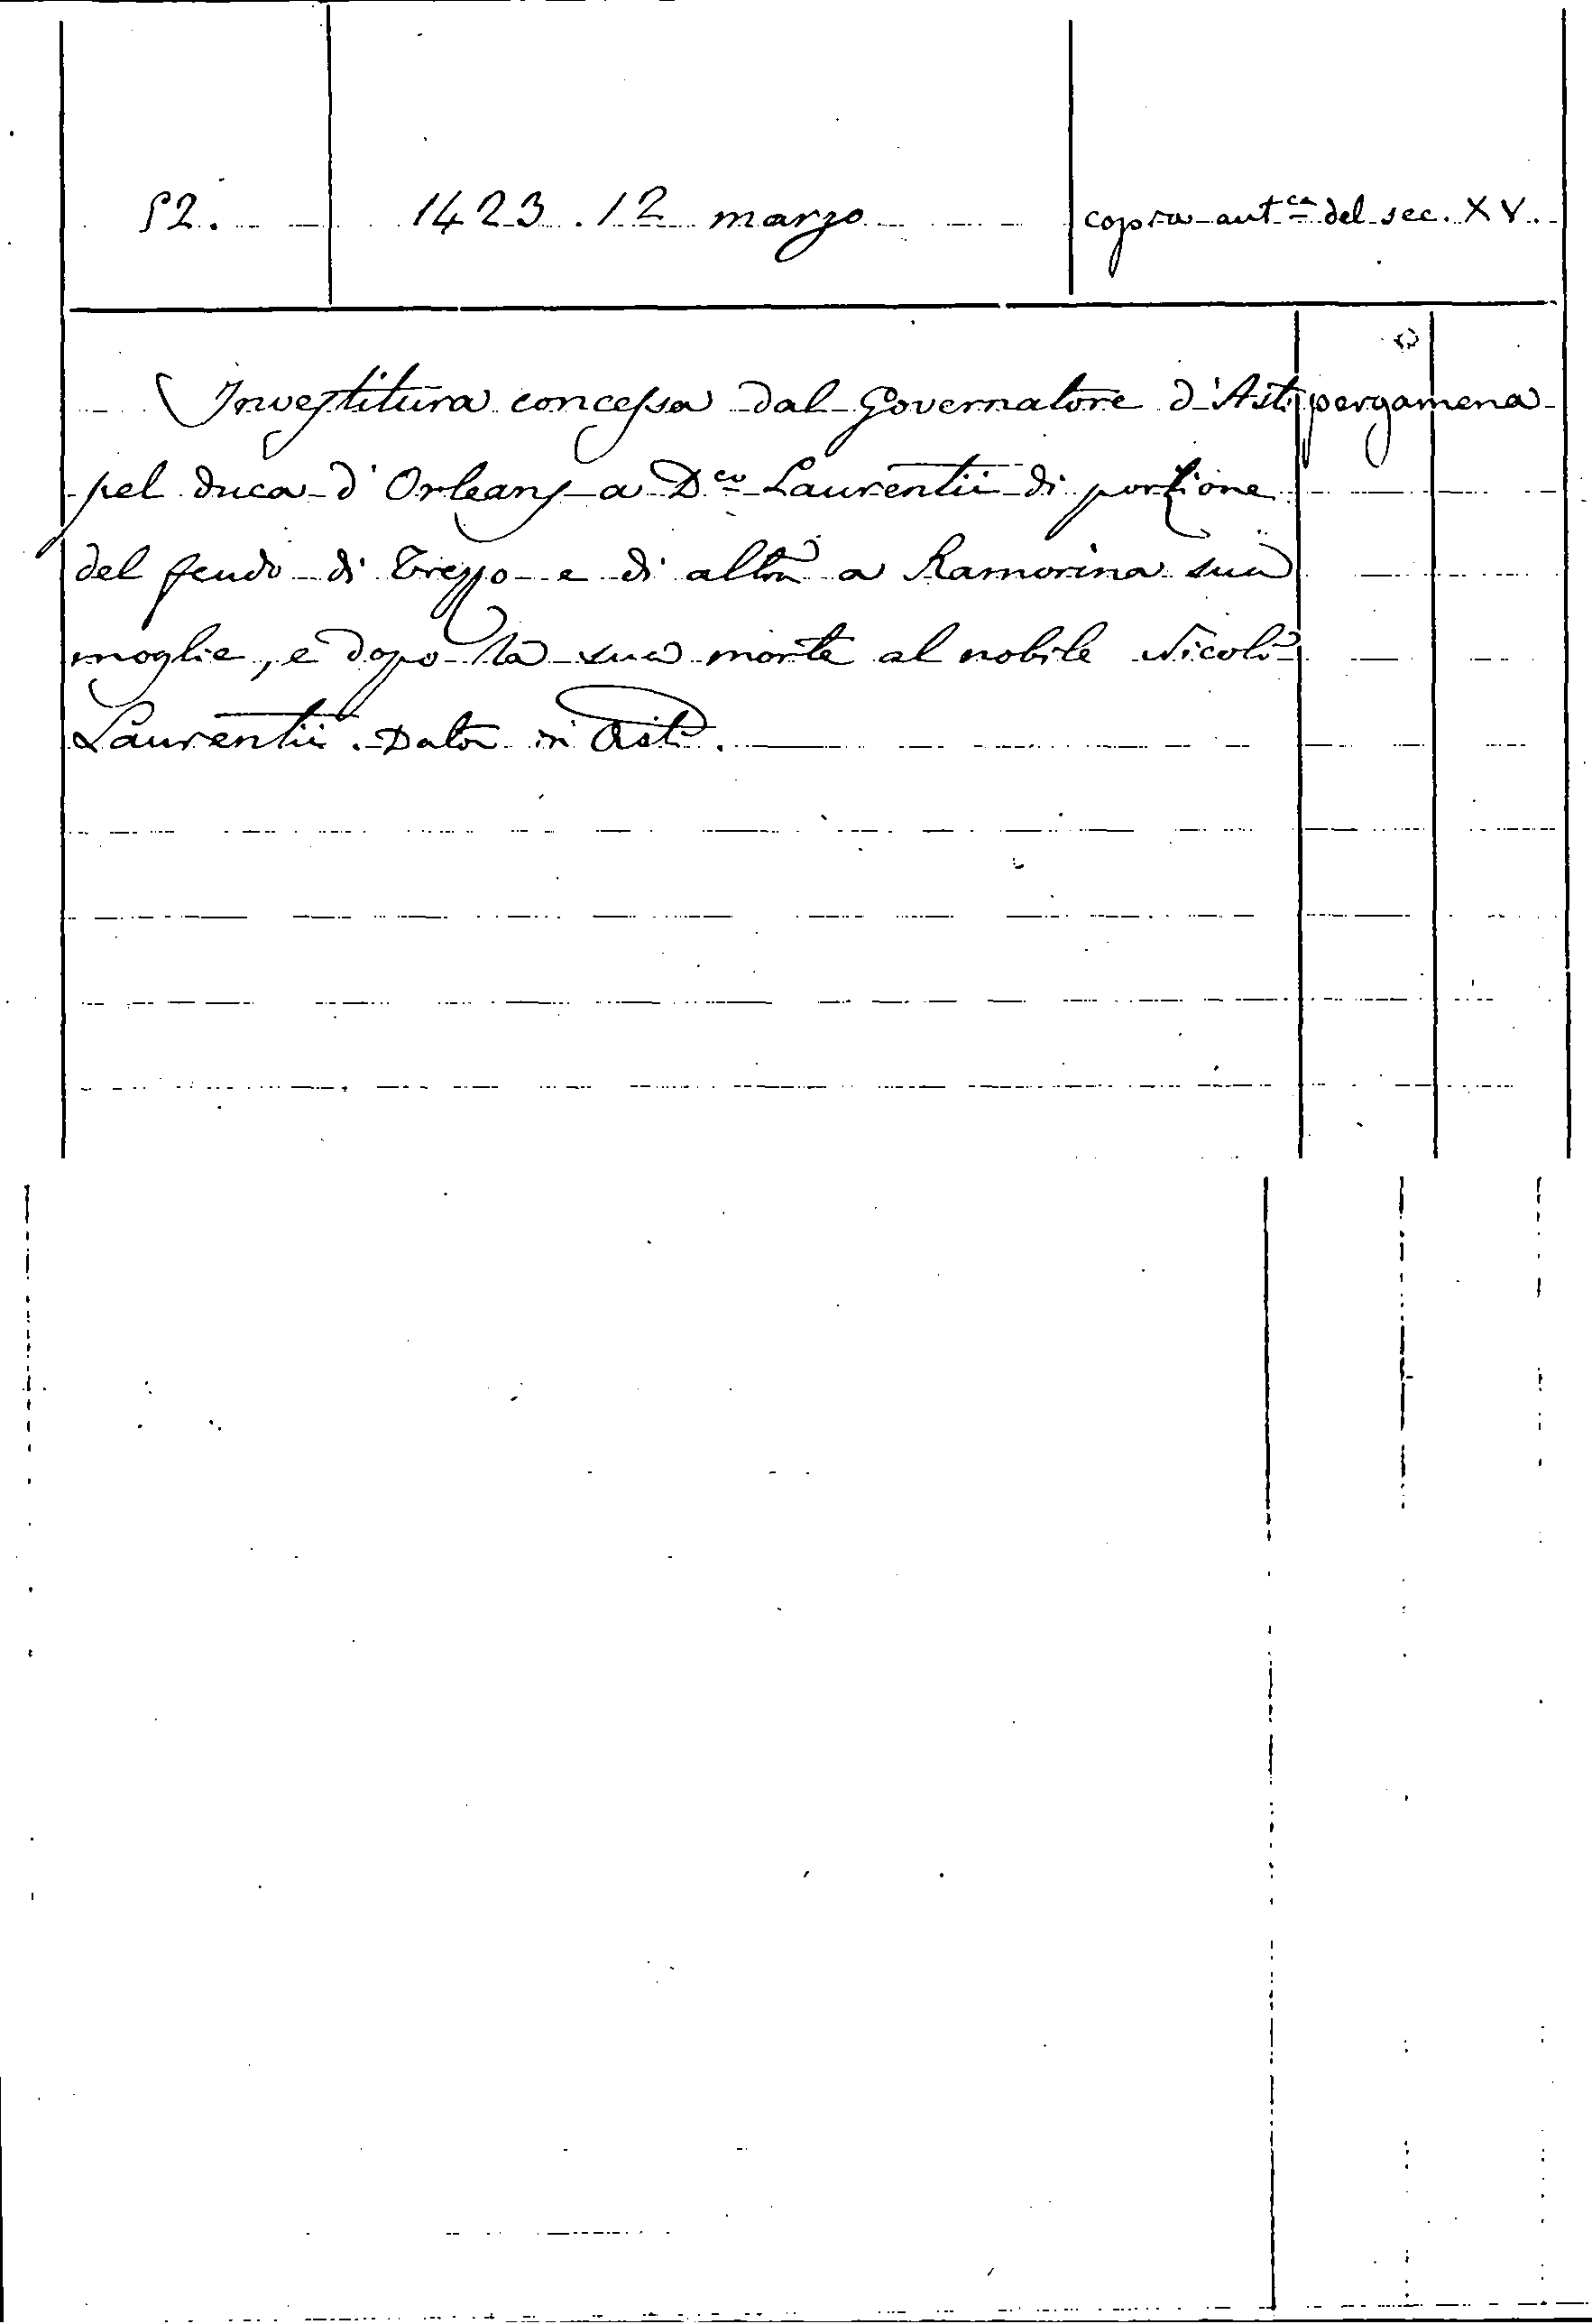 52. 1423. 12 marzo copia aut.ca del sec. XV.
Investitura concessa dal Governatore d'Asti pergamena
pel duca d'Orleans a D.co Laurentii di porzione
del feudo di Trezzo e di altra a Ramorina sua
moglie, e dopo la sua morte al nobile Nicolò
Laurentii. Data in Asti.